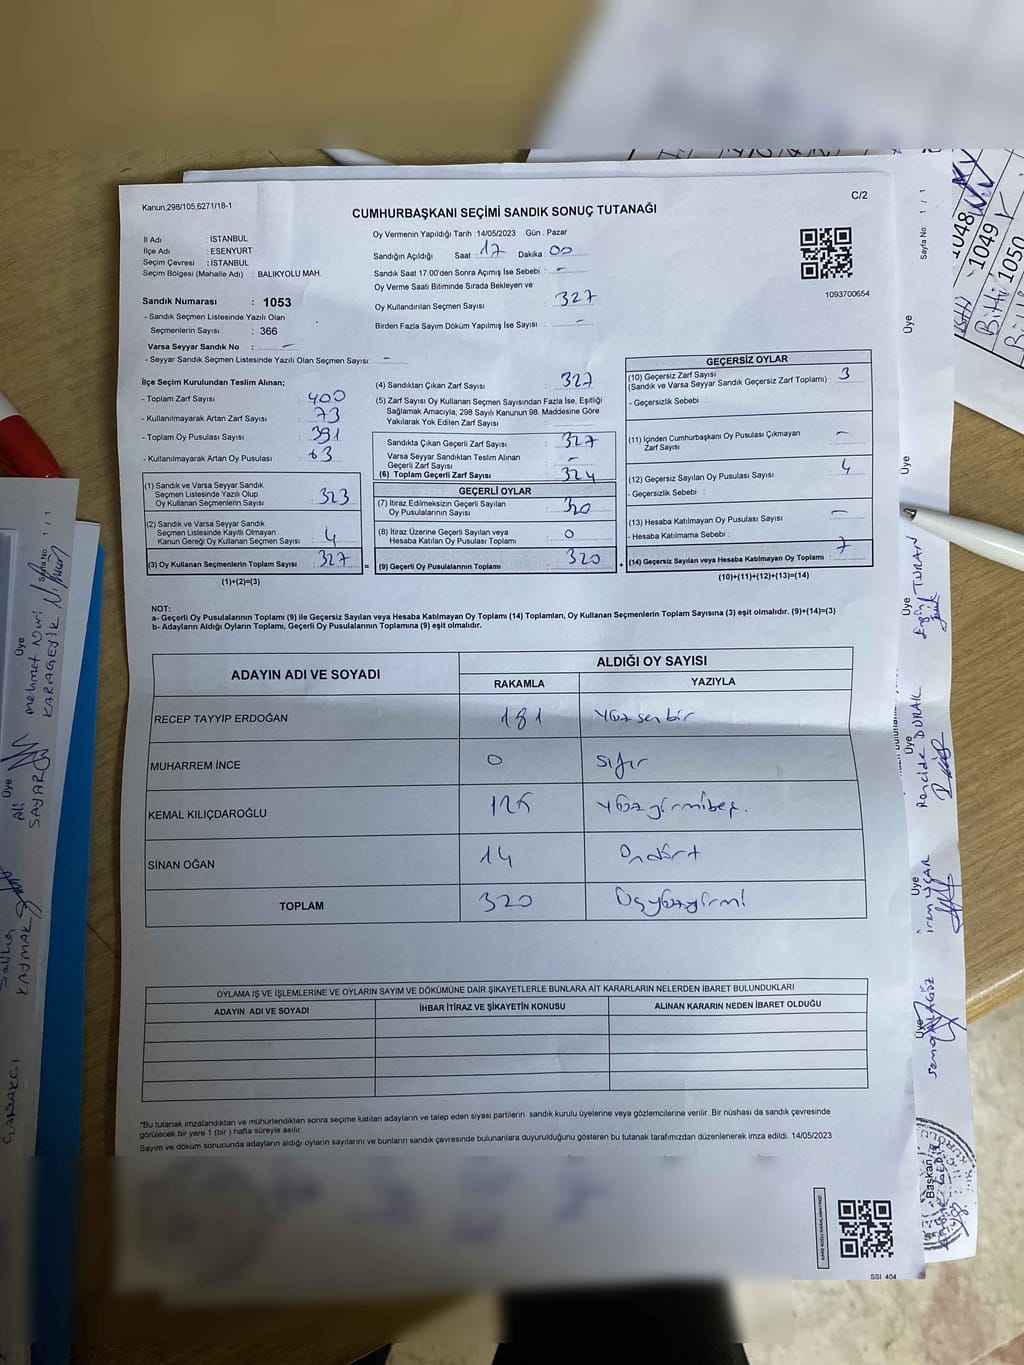 Kanun,298/105,6271/18-1
C/2
CUMHURBAŞKANI SEÇİMİ SANDIK SONUÇ TUTANAĞI
İl Adı : İSTANBUL
İlçe Adı : ESENYURT
Seçim Çevresi : İSTANBUL
Seçim Bölgesi (Mahalle Adı) : BALIKYOLU MAH.
Sandık Numarası : 1053
- Sandık Seçmen Listesinde Yazılı Olan
Seçmenlerin Sayısı : 366
Varsa Seyyar Sandık No : -
- Seyyar Sandık Seçmen Listesinde Yazılı Olan Seçmen Sayısı: -
Oy Vermenin Yapıldığı Tarih : 14/05/2023 Gün : Pazar
Sandığın Açıldığı Saat : 17 Dakika : 00
Sandık Saat 17:00'den Sonra Açımış İse Sebebi : -
Oy Verme Saati Bitiminde Sırada Bekleyen ve
Oy Kullandırılan Seçmen Sayısı : 327
Birden Fazla Sayım Döküm Yapılmış İse Sayısı : -
1093700654
İlçe Seçim Kurulundan Teslim Alınan;
- Toplam Zarf Sayısı : 400
- Kullanılmayarak Artan Zarf Sayısı : 73
- Toplam Oy Pusulası Sayısı : 391
- Kullanılmayarak Artan Oy Pusulası : 63
(1) Sandık ve Varsa Seyyar Sandık
Seçmen Listesinde Yazılı Olup
Oy Kullanan Seçmenlerin Sayısı : 323
(2) Sandık ve Varsa Seyyar Sandık
Seçmen Listesinde Kayıtlı Olmayan
Kanun Gereği Oy Kullanan Seçmen Sayısı : 4
(3) Oy Kullanan Seçmenlerin Toplam Sayısı : 327
(1)+(2)=(3)
(4) Sandıktan Çıkan Zarf Sayısı : 327
(5) Zarf Sayısı Oy Kullanan Seçmen Sayısından Fazla İse, Eşitliği
Sağlamak Amacıyla; 298 Sayılı Kanunun 98. Maddesine Göre
Yakılarak Yok Edilen Zarf Sayısı :
Sandıkta Çıkan Geçerli Zarf Sayısı : 327
Varsa Seyyar Sandıktan Teslim Alınan
Geçerli Zarf Sayısı : -
(6) Toplam Geçerli Zarf Sayısı : 324
GEÇERLİ OYLAR
(7) İtiraz Edilmeksizin Geçerli Sayılan
Oy Pusulalarının Sayısı : 320
(8) İtiraz Üzerine Geçerli Sayılan veya
Hesaba Katılan Oy Pusulası Toplamı : 0
(9) Geçerli Oy Pusulalarının Toplamı : 320
GEÇERSİZ OYLAR
(10) Geçersiz Zarf Sayısı
(Sandık ve Varsa Seyyar Sandık Geçersiz Zarf Toplamı) : 3
- Geçersizlik Sebebi :
(11) İçinden Cumhurbaşkanı Oy Pusulası Çıkmayan
Zarf Sayısı : -
(12) Geçersiz Sayılan Oy Pusulası Sayısı : 4
- Geçersizlik Sebebi :
(13) Hesaba Katılmayan Oy Pusulası Sayısı : -
- Hesaba Katılmama Sebebi :
(14) Geçersiz Sayılan veya Hesaba Katılmayan Oy Toplamı : 7
(10)+(11)+(12)+(13)=(14)
NOT:
a- Geçerli Oy Pusulalarının Toplamı (9) ile Geçersiz Sayılan veya Hesaba Katılmayan Oy Toplamı (14) Toplamları, Oy Kullanan Seçmenlerin Toplam Sayısına (3) eşit olmalıdır. (9)+(14)=(3)
b- Adayların Aldığı Oyların Toplamı, Geçerli Oy Pusulalarının Toplamına (9) eşit olmalıdır.
ADAYIN ADI VE SOYADI
ALDIĞI OY SAYISI
RAKAMLA YAZIYLA
RECEP TAYYİP ERDOĞAN 181 yüz senbir
MUHARREM İNCE 0 sıfır
KEMAL KILIÇDAROĞLU 125 yüzyirmibeş.
SİNAN OĞAN 14 Ondört
TOPLAM 320 Üçyüzyirmi
OYLAMA İŞ VE İŞLEMLERİNE VE OYLARIN SAYIM VE DÖKÜMÜNE DAİR ŞİKAYETLERLE BUNLARA AİT KARARLARIN NELERDEN İBARET BULUNDUKLARI
ADAYIN ADI VE SOYADI
İHBAR İTİRAZ VE ŞİKAYETİN KONUSU
ALINAN KARARIN NEDEN İBARET OLDUĞU
*Bu tutanak imzalandıktan ve mühürlendikten sonra seçime katılan adayların ve talep eden siyasi partilerin sandık kurulu üyelerine veya gözlemcilerine verilir. Bir nüshası da sandık çevresinde
görülecek bir yere 1 (bir) hafta süreyle asılır.
Sayım ve döküm sonucunda adayların aldığı oyların sayılarını ve bunların sandık çevresinde bulunanlara duyurulduğunu gösteren bu tutanak tarafımızdan düzenlenerek imza edildi. 14/05/2023
SSI 404
Sayfa No: 1 / 1
Üye
Üye
Üye
Engin TURAN
Üye
Rancide DURAK
Üye
İrem UÇAR
Üye
Başkan
1048
1049
Bitti 1050
Sayfa No 1 / 1
Üye
mehmet Nuri
KARAGEYİK
Üye
Ali
SAYAR
Saliha
KAYMAK